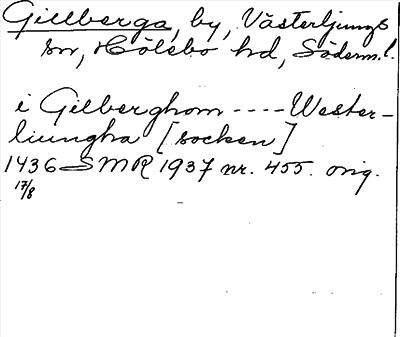 Gillberga, by, Västerljungs
sn, Hölebo hd, Söderm. l.
i Gilberghom ---- Wester-
liungha [socken]
1436 SMR 1937 nr. 455. orig.
17/8